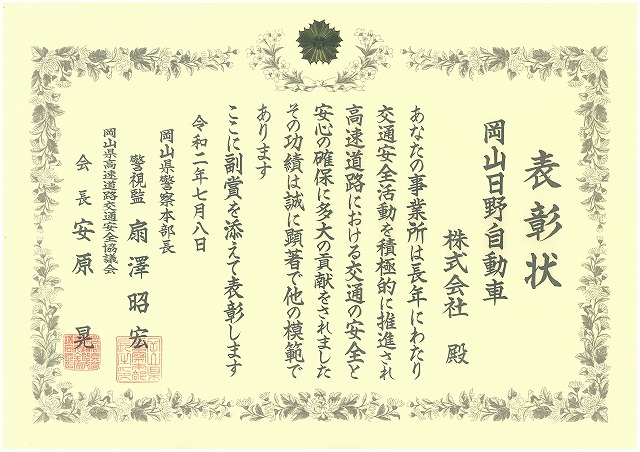 表彰状
岡山日野自動車
株式会社 殿
あなたの事業所は長年にわたり
交通安全活動を積極的に推進され
高速道路における交通の安全と
安心の確保に多大の貢献をされました
その功績は誠に顕著で他の模範で
あります
ここに副賞を添えて表彰します
令和二年七月八日
岡山県警察本部長
警視監 扇澤昭宏
岡山県高速道路交通安全協議会
会長 安原 晃